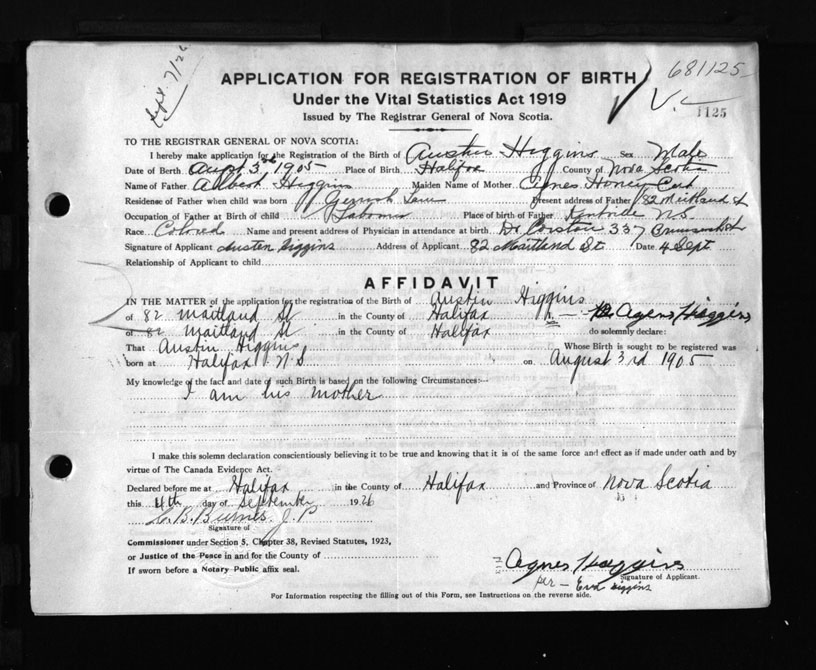 Sept. 7/26
APPLICATION FOR REGISTRATION OF BIRTH
681125
Under the Vital Statistics Act 1919
1125
Issued by The Registrar General of Nova Scotia.
TO THE REGISTRAR GENERAL OF NOVA SCOTIA:
I hereby make application for the Registration of the Birth of Austin Higgins Sex Male
Date of Birth 3rd 1905 Place of Birth Halifax County of Nova Scotia
Name of Father Albert Higgins Maiden Name of Mother Agnes
Residense of Father when child was born Present address of Father 82 Maitland St
Occupation of Father at Birth of child Place of birth of Father N.S.
Race Colored Name and present address of Physician in attendance at birth Dr 337 Brunswick St
Signature of Applicant Austen Higgins Address of Applicant 82 Maitland St Date 4 Sept
Relationship of Applicant to child
AFFIDAVIT
IN THE MATTER of the application for the registration of the Birth of Austin Higgins
of 82 Maitland St in the County of Halifax Agens Higgins
of 82 Maitland St in the County of Halifax do solemnly declare:
That Austin Higgins Whose Birth is sought to be registered was
born at Halifax N.S on August 3rd 1905
My knowledge of the fact and date of such Birth is based on the following Circumstances:--
I am his mother
I make this solemn declaration conscientiously believing it to be true and knowing that it is of the same force and effect as if made under oath and by
virtue of The Canada Evidence Act.
Declared before me at Halifax in the County of Halifax and Province of Nova Scotia
this 4th day of September 1926
B. J. P
Signature of
Commissioner under Section 5, Chapter 38, Revised Statutes, 1923,
or Justice of the Peace in and for the County of
If sworn before a Notary Public affix seal.
Agnes Higgins
Signature of Applicant.
per - Higgins
For Information respecting the filling out of this Form, see Instructions on the reverse side.